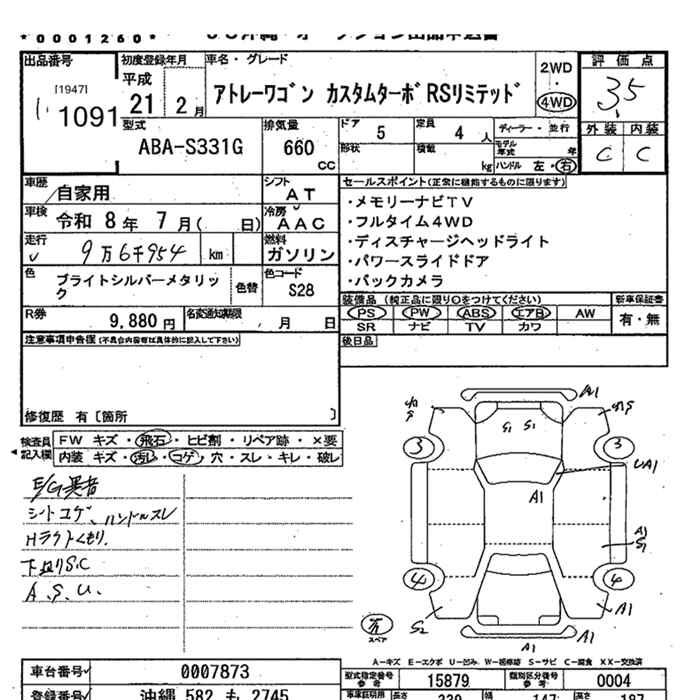 *0001260*
出品番号
[1947]
1091
初度登録年月
平成
21 2月
車名・グレード
アトレーワゴン カスタムターボRSリミテッド
2WD
4WD
評価点
3.5
外装 内装
C C
型式
ABA-S331G
排気量
660
cc
ドア
5
定員
4 人
形状
積載
kg
ディーラー・並行
モデル年式
年
ハンドル 左・右
車歴
自家用
シフト
AT
車検
令和 8年 7月( 日)
冷房
AAC
走行
9万6千954 km
燃料
ガソリン
色
ブライトシルバーメタリック
色替
色コード
S28
R券
9,880円
名変通知期限
月 日
セールスポイント(正常に機能するものに限ります)
・メモリーナビTV
・フルタイム4WD
・ディスチャージヘッドライト
・パワースライドドア
・バックカメラ
装備品(純正品に限り○をつけてください)
PS PW ABS エアB AW
SR ナビ TV カワ
新車保証書
有・無
後日品
注意事項申告欄(不具合内容等は具体的に記入して下さい)
修復歴 有〔箇所 〕
検査員記入欄
FW キズ・飛石・ヒビ割・リペア跡・×要
内装 キズ・汚レ・コゲ・穴・スレ・キレ・破レ
E/G異音
シートコゲ、ハンドルスレ
Hライトくもり
下廻りS.C
A.S.U.
A1
S1 S1
3 3
UA1
A1
A1
S1
4 4
S2
A1
A1
A1
スペア
A-キズ E-エクボ U-凹み W-補修跡 S-サビ C-腐食 XX-交換済
車台番号
0007873
型式指定番号
参考
15879
類別区分番号
参考
0004
登録番号
沖縄 582 も 2745
長さ
339
幅
147
高さ
187